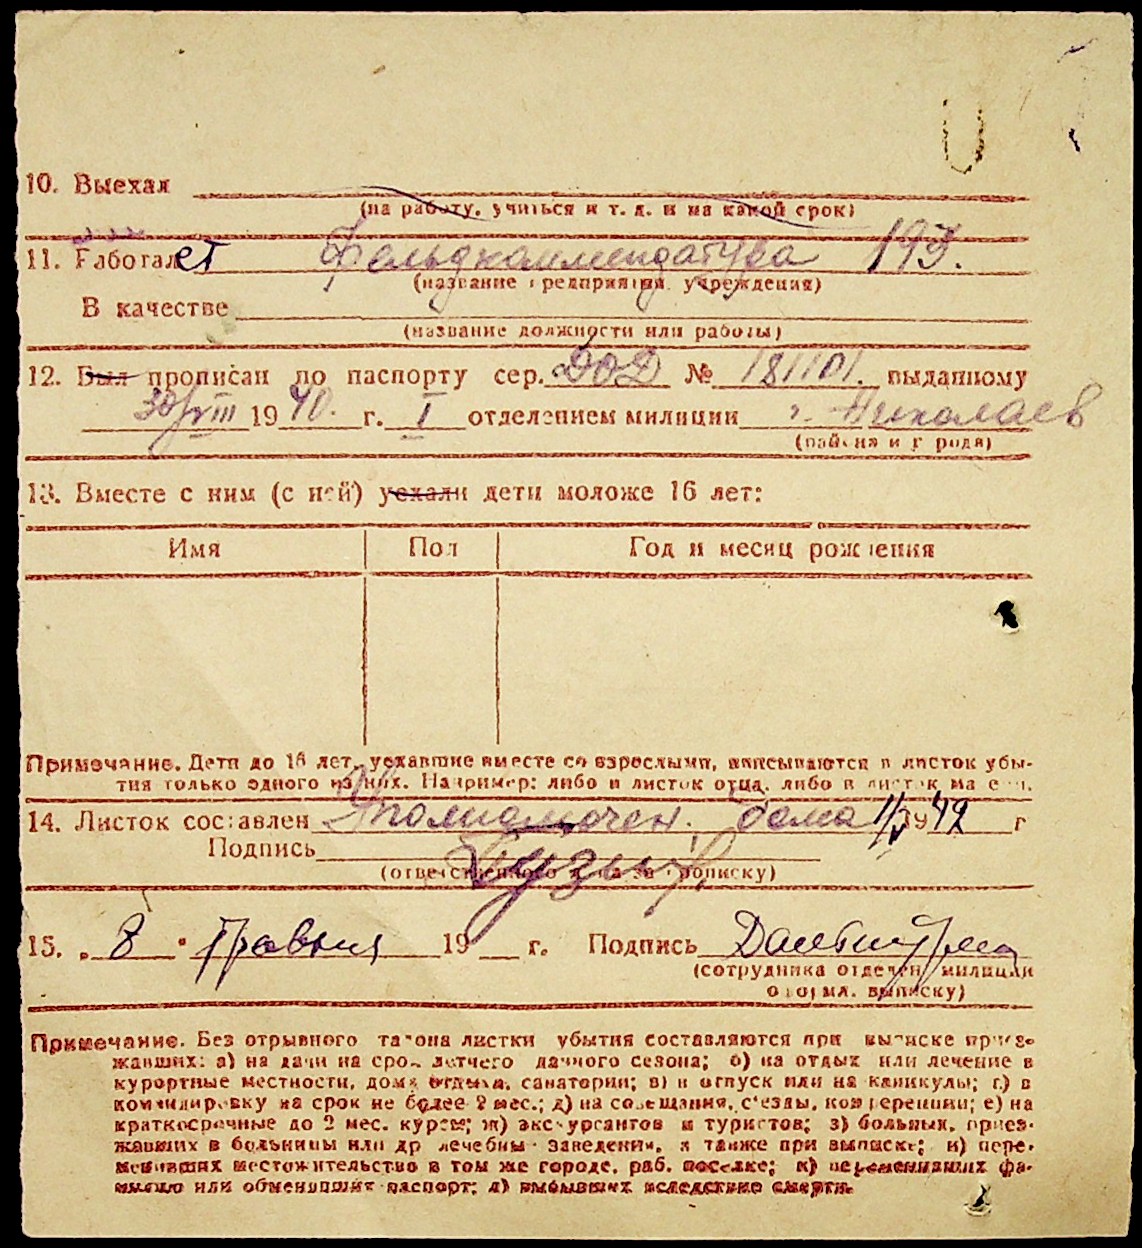 10. Выехал
(на работу, учиться и т. д. и на какой срок)
11. Работает Фельдкоммендатура 193.
(название предприятия, учреждения)
В качестве
(название должности или работы)
12. Был прописан по паспорту сер. ДОД № 181101. выданному
30/VIII 1940. г. I отделением милиции г. Николаев
(района и города)
13. Вместе с ним (с ней) уехали дети моложе 16 лет:
Имя Пол Год и месяц рождения
Примечание. Дети до 16 лет, уехавшие вместе со взрослыми, вписываются в листок убы-
тия только одного из них. Например: либо в листок отца, либо в листок матери.
14. Листок составлен Уполномочен. дома 1/V 1942 г
Подпись
(ответственного лица за прописку)
15. „8" Травня 19 г. Подпись
(сотрудника отделен. милиции
оформл. выписку)
Примечание. Без отрывного талона листки убытия составляются при выписке приез-
жавших: а) на дачи на срок летнего дачного сезона; б) на отдых или лечение в
курортные местности, дома отдыха, санатории; в) в отпуск или на каникулы; г) в
командировку на срок не более 2 мес.; д) на совещания, съезды, конференции; е) на
краткосрочные до 2 мес. курсы; ж) экскурсантов и туристов; з) больных, приез-
жавших в больницы или др лечебны заведения, а также при выписке; и) пере-
менивших местожительство в том же городе, раб. поселке; к) переменивших фа-
милию или обменивших паспорт; л) выбывших вследствие смерти.